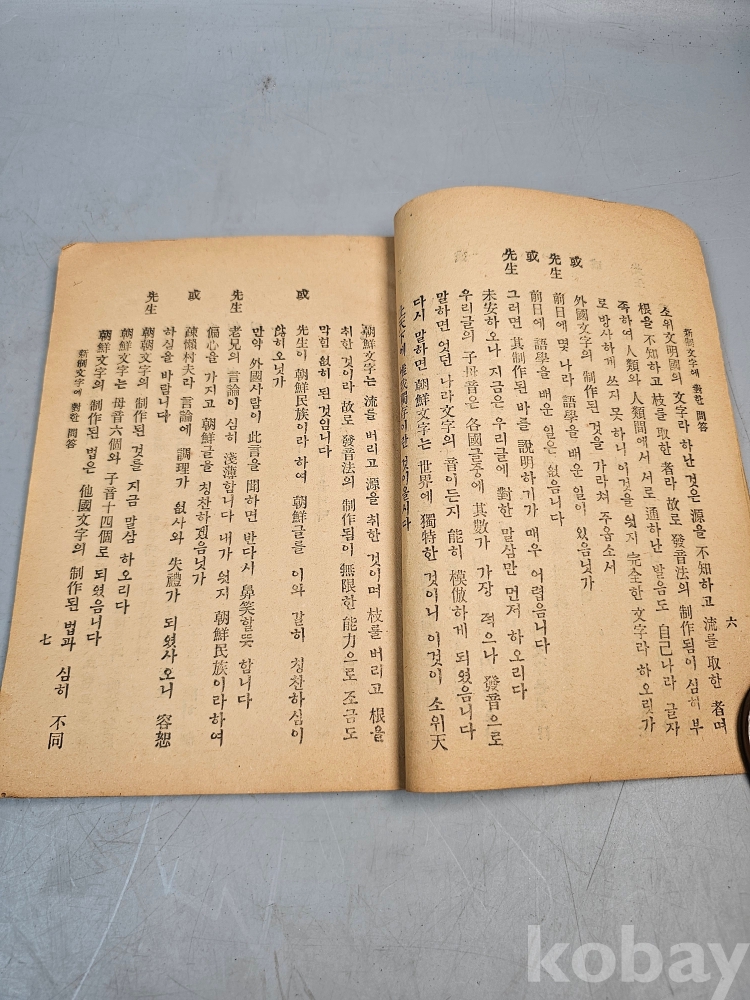 新制文字에 對한 問答
六
소위文明國의 文字라 하난 것은 源을 不知하고 流를 取한 者며
根을 不知하고 枝를 取한 者라 故로 發音法의 制作됨이 심히 부
족하여 人類와 人類間에서 서로 通하난 발음도 自己나라 글자
로 방사하게 쓰지 못하니 이것을 엇지 完全한 文字라 하오릿가
或 外國文字의 制作된 것을 가라쳐 주옵소서
先生 前日에 몇 나라 語學을 배운 일이 있음닛가
或 前日에 語學을 배운 일은 없음니다
先生 그러면 其制作된 바를 說明하기가 매우 어렵음니다
未安하오나 지금은 우리글에 對한 말삼만 먼저 하오리다
우리글의 子母音은 各國글중에 其數가 가장 적으나 發音으로
말하면 엇던 나라文字의 音이든지 能히 模倣하게 되엿음니다
다시 말하면 朝鮮文字는 世界에 獨特한 것이니 이것이 소위天
朝鮮文字는 流를 버리고 源을 취한 것이며 枝를 버리고 根을
취한 것이라 故로 發音法의 制作됨이 無限한 能力으로 조금도
막힘 없히 된 것입니다
或 先生이 朝鮮民族이라 하여 朝鮮글를 이와 갈히 칭찬하심이
안히오닛가
만약 外國사람이 此言을 聞하면 반다시 鼻笑할뜻 합니다
先生 老兄의 言論이 심히 淺薄합니다 내가 엇지 朝鮮民族이라하여
偏心을 가지고 朝鮮글을 칭찬하겠음닛가
或 疎懶村夫라 言論에 調理가 없사와 失禮가 되엿사오니 容恕
하심을 바람니다
先生 朝鮮文字의 制作된 것를 지금 말삼 하오리다
朝鮮文字는 母音六個와 子音十四個로 되엿음니다
朝鮮文字의 制作된 法은 他國文字의 制作된 法과 심히 不同
新制文字에 對한 問答
七
kobay